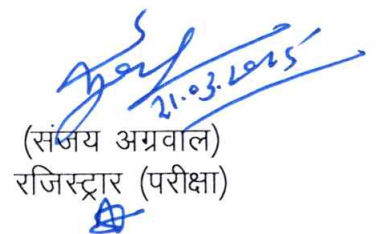 21.03.2025
(संजय अग्रवाल)
रजिस्ट्रार (परीक्षा)